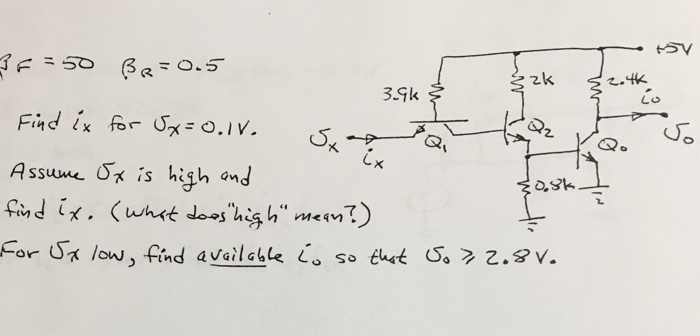 βF = 50 βR = 0.5
Find ix for υx = 0.1V.
Assume υx is high and
find ix. (What does "high" mean?)
For υx low, find available io so that υo ≥ 2.8 V.
+5V
3.9k
2k
2.4k
io
υo
υx
ix
Q1
Q2
Qo
0.8k